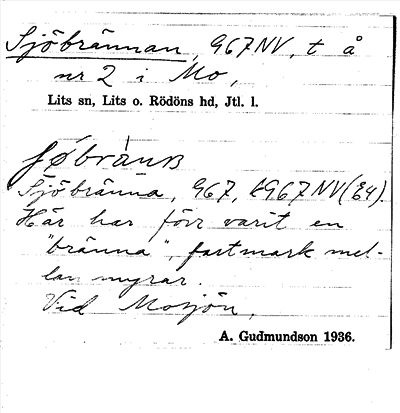 Sjöbrännan, 967NV, t å
nr 2 i Mo,
Lits sn, Lits o. Rödöns hd, Jtl. l.
Sjöbränna, 967, k967NV(E4).
Här har förr varit en
"bränna", fastmark mel-
lan myrar.
Vid Mosjön.
A. Gudmundson 1936.